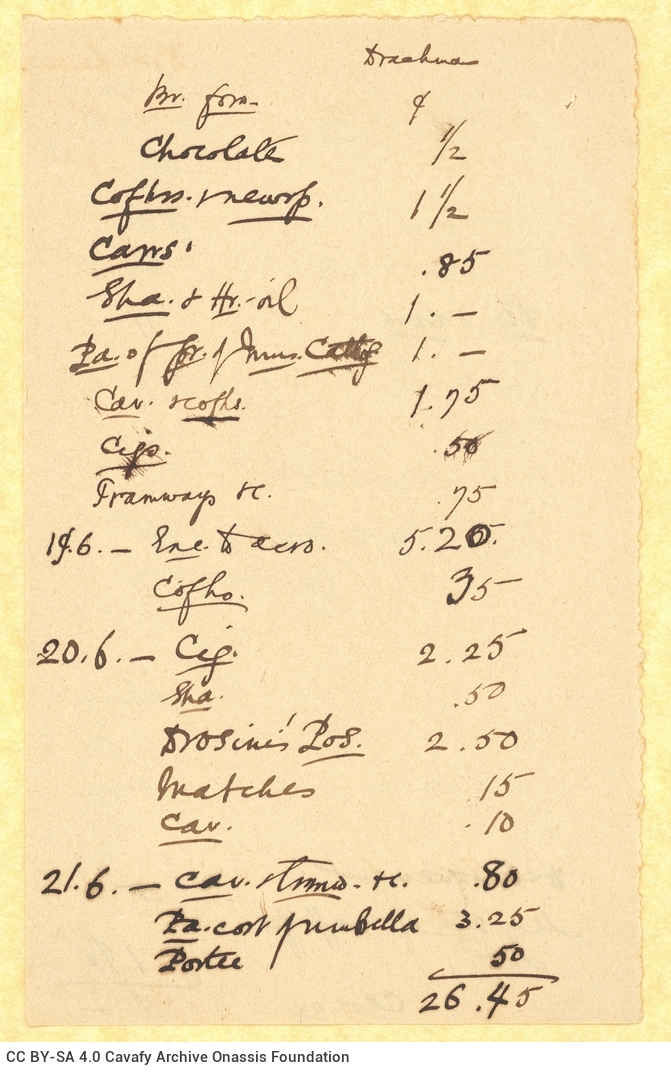 Drachmas
Br. from ¢
Chocolate 1/2
Cofhs. & newsp. 1 1/2
Carrs' .85
Sha. & Hr.-oil 1.—
Pa. of 1.—
Cav. & cofhs. 1.75
Cigs. .50
Tramways &c. .75
19.6.— Enc. to acro. 5.20
Cofho. 35
20.6.— Cig. 2.25
Sha. .50
Drosinis' Pos. 2.50
Matches .15
Cav. .10
21.6.— Cav. & tramw. &c. .80
Pa. cost umbella 3.25
Porter 50
26.45
CC BY-SA 4.0 Cavafy Archive Onassis Foundation